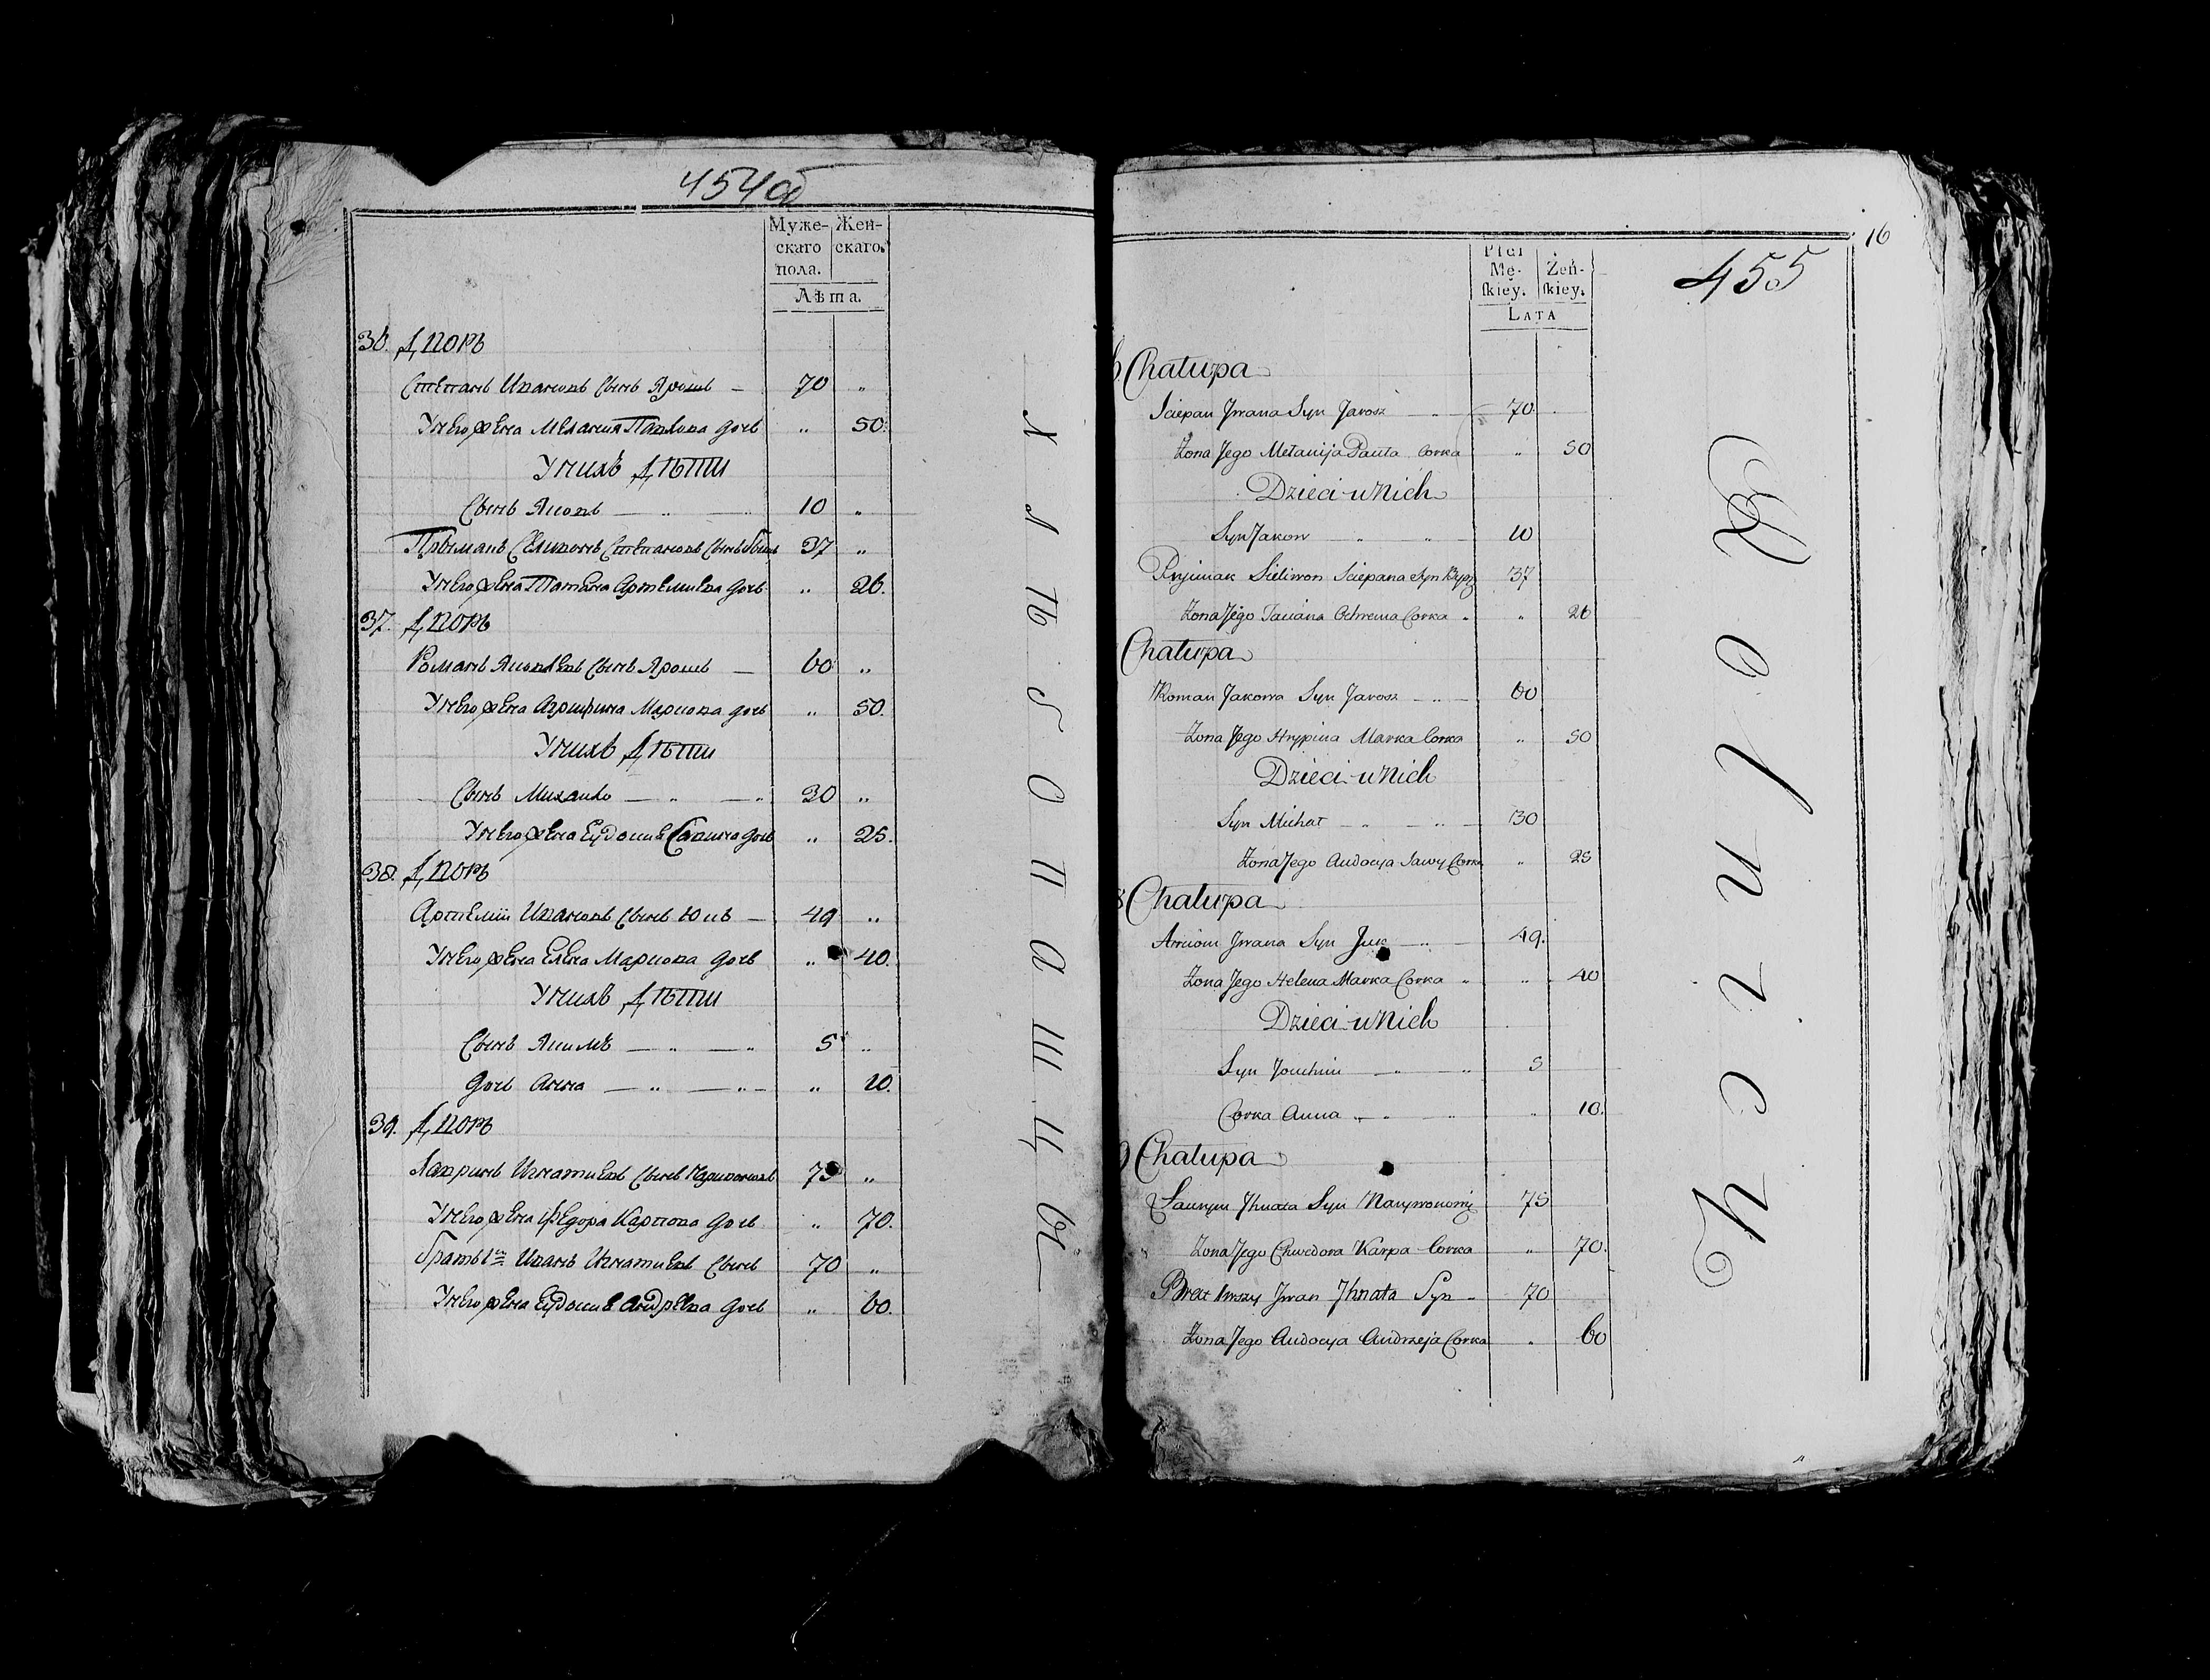 454об
Муже- Жен-
скаго скаго.
пола.
Лѣта.
36. Дворъ
Степанъ Ивановъ сынъ Ярошъ — 70 „
У него жена Мелания Павлова дочь „ 50.
У нихъ дѣти
Сынъ Яковъ — „ — „ 10 „
Прымакъ Селивонъ Степановъ сынъ 37 „
У него жена Татяна Артемиева дочь „ 26.
37. Дворъ
Романъ Яковлевъ сынъ Ярошъ — 60 „
У него жена Агрипина Маркова дочь „ 50.
У нихъ дѣти
Сынъ Михайло — „ — „ 30 „
У него жена Еудокия Савина дочь „ 25.
38. Дворъ
Артемій Ивановъ сынъ Юкъ — 49 „
У него жена Елена Маркова дочь „ 40.
У нихъ дѣти
Сынъ Якимъ — „ — „ 5 „
Дочь Анна — „ — „ — „ 10.
39. Дворъ
Лавринъ Игнатиевъ сынъ 75 „
У него жена Федора Карпова дочь „ 70.
Братъ Иванъ Игнатиевъ сынъ 70 „
У него жена Еудокия Андрѣева дочь „ 60.
16
455
Płci
Mę- Żeń-
skiey. skiey.
LATA
Chałupa
Sciepan Jwana Syn Jarosz — „ — 70.
Żona Jego Mełanija Pauła Corka „ 50
Dzieci u Nich
Syn Jakow — „ „ — 10
Pryjmak Sieliwon Sciepana Syn 37
Żona Jego Taciana Ochrema Corka „ „ 26
Chałupa
Roman Jakowa Syn Jarosz — „ — 60
Żona Jego Hrypina Marka Corka „ 50
Dzieci u Nich
Syn Michał — „ — „ — 30
Żona Jego Audocya Sawy Corka „ 25
8 Chałupa
Arciom Jwana Syn Juk — „ — 49.
Żona Jego Helena Marka Corka „ „ 40
Dzieci u Nich
Syn Jouchim — „ 5
Corka Anna „ „ — „ 10.
9 Chałupa
Ławryn Jhnata Syn 75
Żona Jego Chwedora Karpa Corka „ 70.
Brat Jwan Jhnata Syn — 70
Żona Jego Audocya Andrzeja Corka „ 60